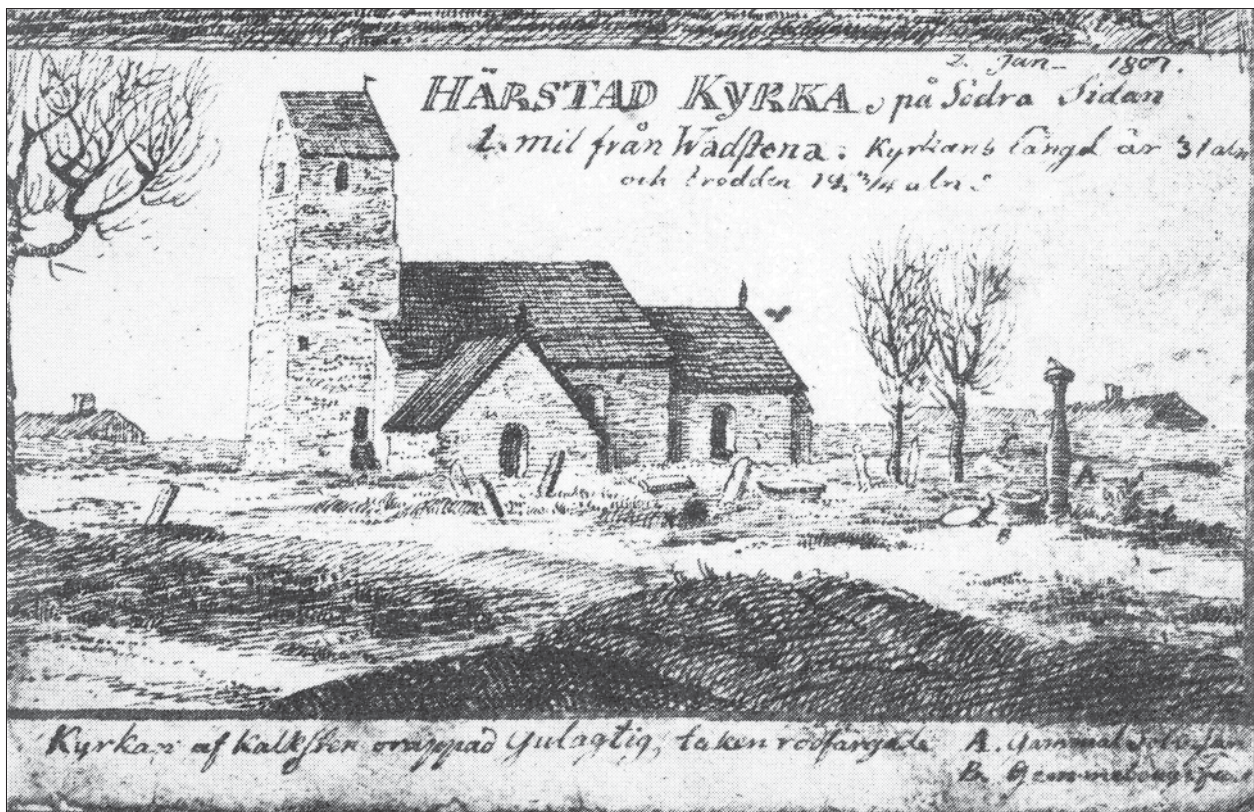 2. Jan- 1807.
HÄRSTAD KYRKA, på Södra Sidan
1. mil från Wadstena. Kyrkans längd är 31 aln
och bredden 14 3/4 aln.
Kyrkan af Kalksten orappad Gulagtig, taken rödfärgade A. Gammal
B.
A
B